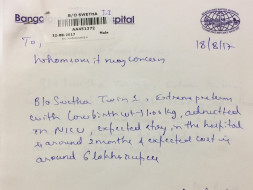 B/O SWETHA T-1
Bang pital
AA451372
Male
To,
18/8/17
whomsoever it may concern
B/O Swetha Twin 1, Extreme preterm
with low birth wt-1.103 kg, admitted
in NICU, expected stay in the hospital
is around 2 months & expected cost is
around 6 lakhs rupee